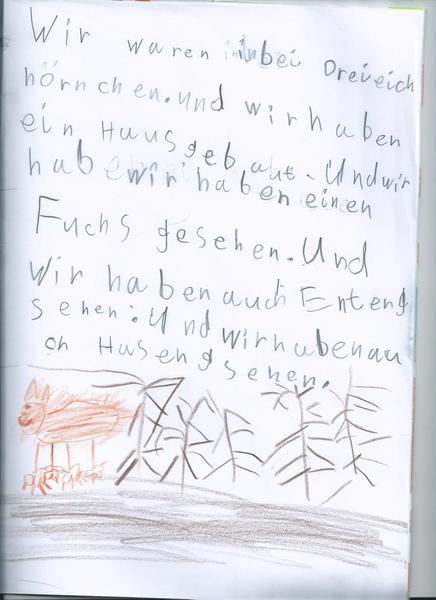 Wir waren bei Dreieich
hörnchen. und wir haben
ein Haus gebaut. Und wir
habe wir haben einen
Fuchs gesehen. Und
wir haben auch Enteng
sehen. Und wir haben au
ch Hasengsehen.